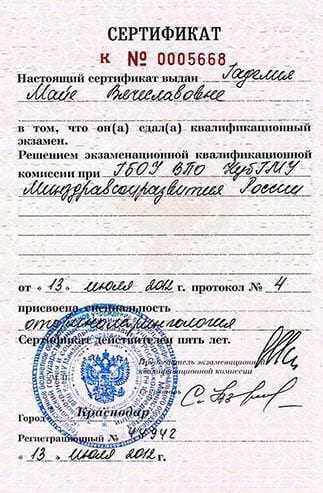 СЕРТИФИКАТ
К № 0005668
Настоящий сертификат выдан Гаделия
Майе Вячеславовне
в том, что он(а) сдал(а) квалификационный
экзамен.
Решением экзаменационной квалификационной
комиссии при ГБОУ ВПО КубГМУ
Минздравсоцразвития России
от « 13 » июля 2012 г. протокол № 4
присвоена специальность
оториноларингология
Сертификат действителен пять лет.
Председатель экзаменационной
квалификационной комиссии
Город Краснодар
Регистрационный №
« 13 » июля 2012 г.